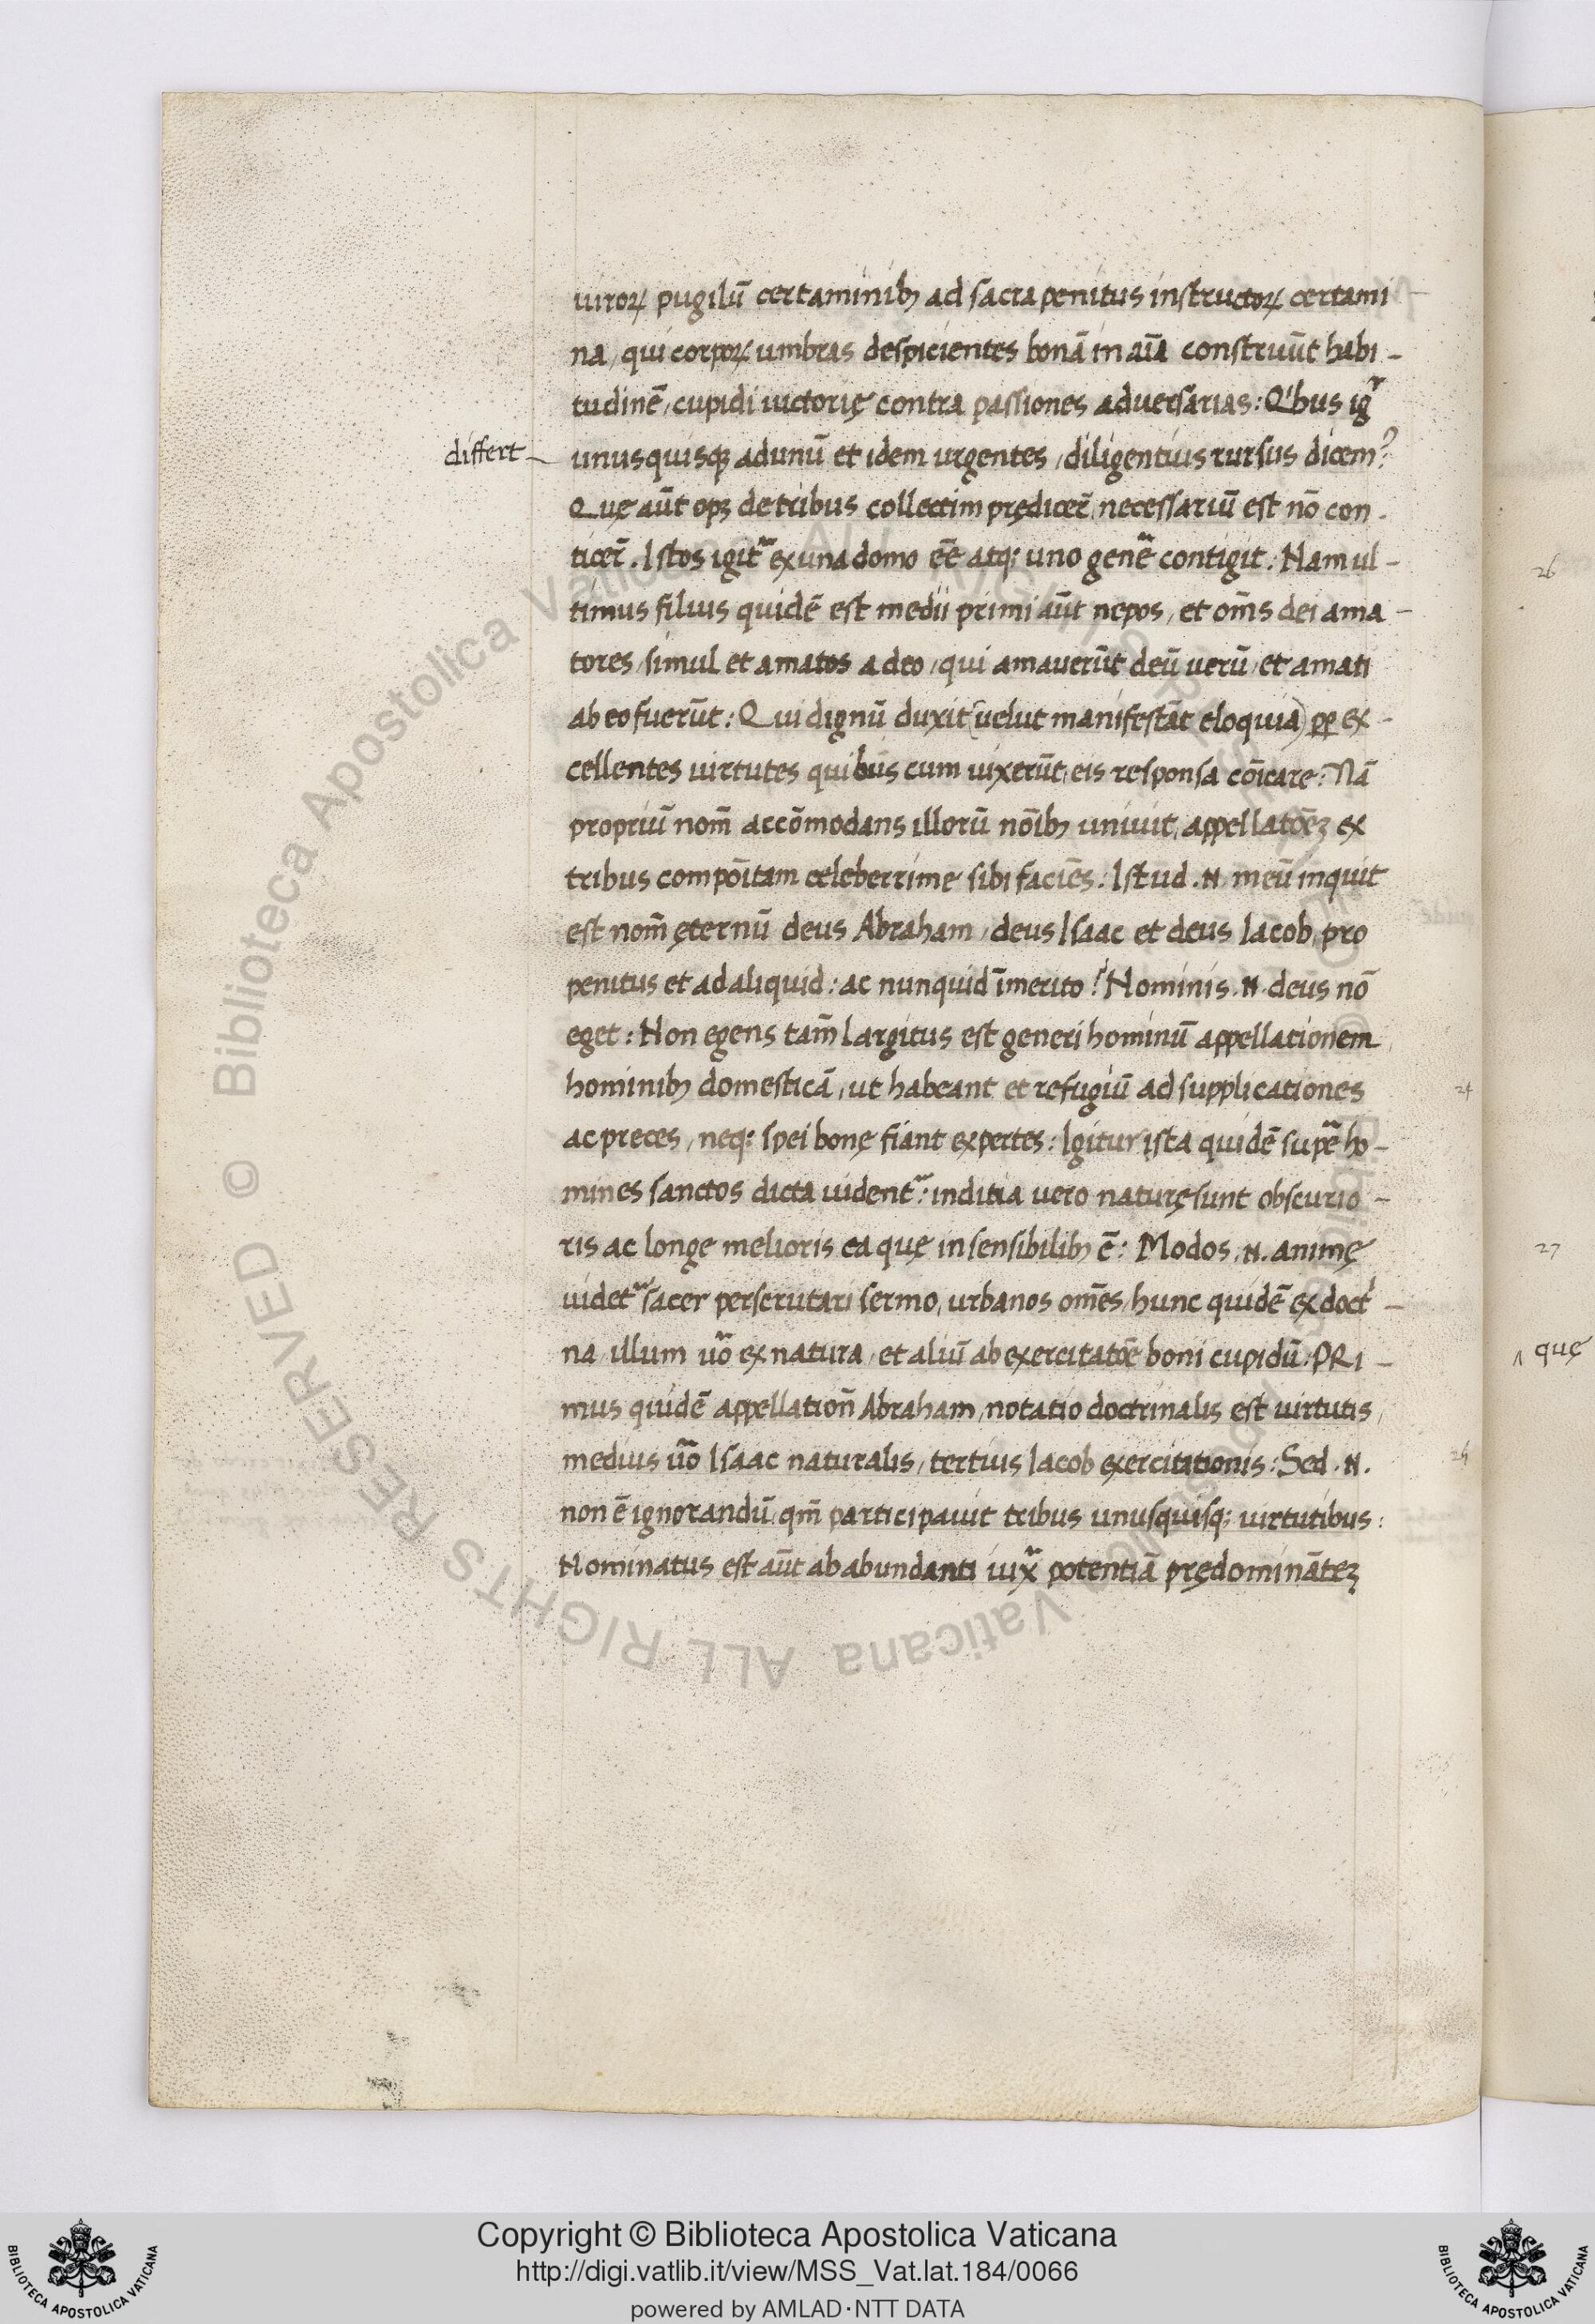 uiroꝝ pugilū certaminibꝫ ad sacra penitus instructoꝝ certami
na, qui corpoꝝ umbras despicientes bonā in aīa construūt habi-
tudinē, cupidi uictorię contra passiones aduersarias: Qͥbus igͬ
differt unusquisqꝫ ad unū et idem urgentes, diligentius rursus dicemꝰ
Quę aūt opꝫ de tribus collectim prędicer̄, necessariū est nō con-
ticer̄. Istos igitᷣ ex una domo eē̄ atqꝫ uno genē contigit. Nam ul-
timus filius quidē est medii primi aūt nepos, et om̄s dei ama-
tores, simul et amatos a deo, qui amauerūt deū uerū, et amati
ab eo fuerūt: Qui dignū duxit (uelut manifestāt eloquia) ꝓꝑ ex-
cellentes uirtutes quibus cum uixerūt, eis responsa cōicare: Nā
propriū nom̄ accōmodans illorū nōībꝫ univit, appellatōeꝫ ex
tribus compōitam celeberrime sibi faciēs: Istud .n. meū inquit
est nom̄ ęternū deus Abraham, deus Isaac et deus Iacob, pro
penitus et ad aliquid: ac nunquid īmerito? Nominis .n. deus nō
eget: Non egens tam̄ largitus est generi hominū appellationem
hominibꝫ domesticā, ut habeant et refugiū ad supplicationes
ac preces, neqꝫ spei bonę fiant expertes: Igitur ista quidē supē ho-
mines sanctos dicta uidentᷣ: inditia uero naturę sunt obscurio-
ris ac longe melioris ea quę in sensibilibꝫ ē: Modos .n. animę
uidetᷣ sacer perscrutari sermo, urbanos om̄es, hunc quidē ex doctͥ-
na, illum u̅o ex natura, et aliū ab exercitatōe boni cupidū. PRi-
mus quidē appellation̄ Abraham, notatio doctrinalis est uirtutis,
medius u̅o Isaac naturalis, tertius Iacob exercitationis: Sed .n.
non ē ignorandū, qm̄ participauit tribus unusquisqꝫ uirtutibus:
Nominatus est aūt ab abundanti iuxͣ potentiā prędomināteꝫ
26
24
27
quę
Copyright © Biblioteca Apostolica Vaticana
http://digi.vatlib.it/view/MSS_Vat.lat.184/0066
powered by AMLAD·NTT DATA
BIBLIOTECA APOSTOLICA VATICANA
BIBLIOTECA APOSTOLICA VATICANA
© Biblioteca Apostolica Vaticana ALL RIGHTS RESERVED